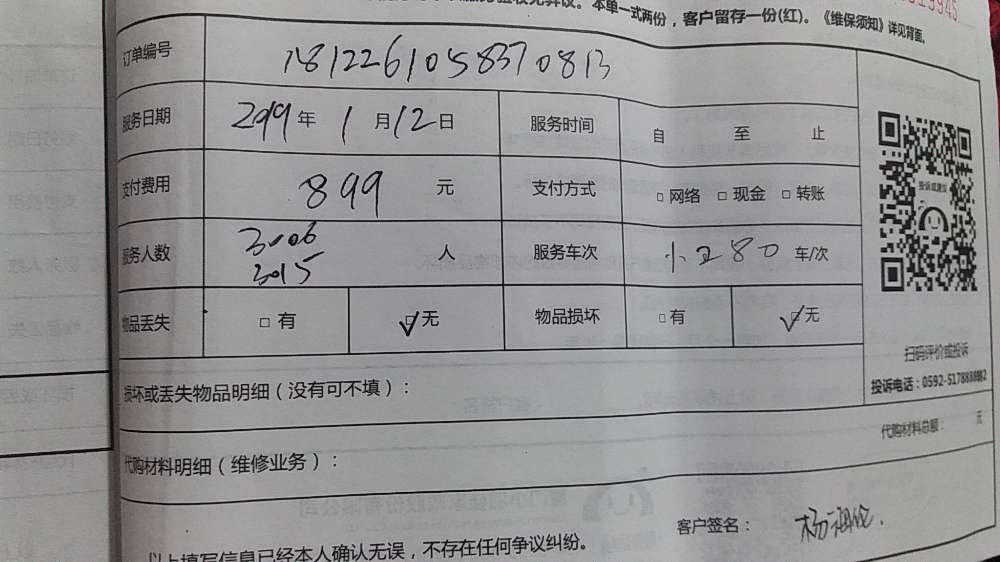 验收无异议。本单一式两份，客户留存一份(红)。《维保须知》详见背面。
订单编号 1812261058370813
服务日期 2019年1月12日 服务时间 自 至 止
支付费用 899 元 支付方式 □网络 □现金 □转账
服务人数 3006 2015 人 服务车次 小280 车/次
物品丢失 □有 ✓□无 物品损坏 □有 ✓□无
投诉或建议
扫码评价或投诉
投诉电话：0592-5178888882
损坏或丢失物品明细（没有可不填）：
代购材料总额： 元
代购材料明细（维修业务）：
客户签名：
以上填写信息已经本人确认无误，不存在任何争议纠纷。